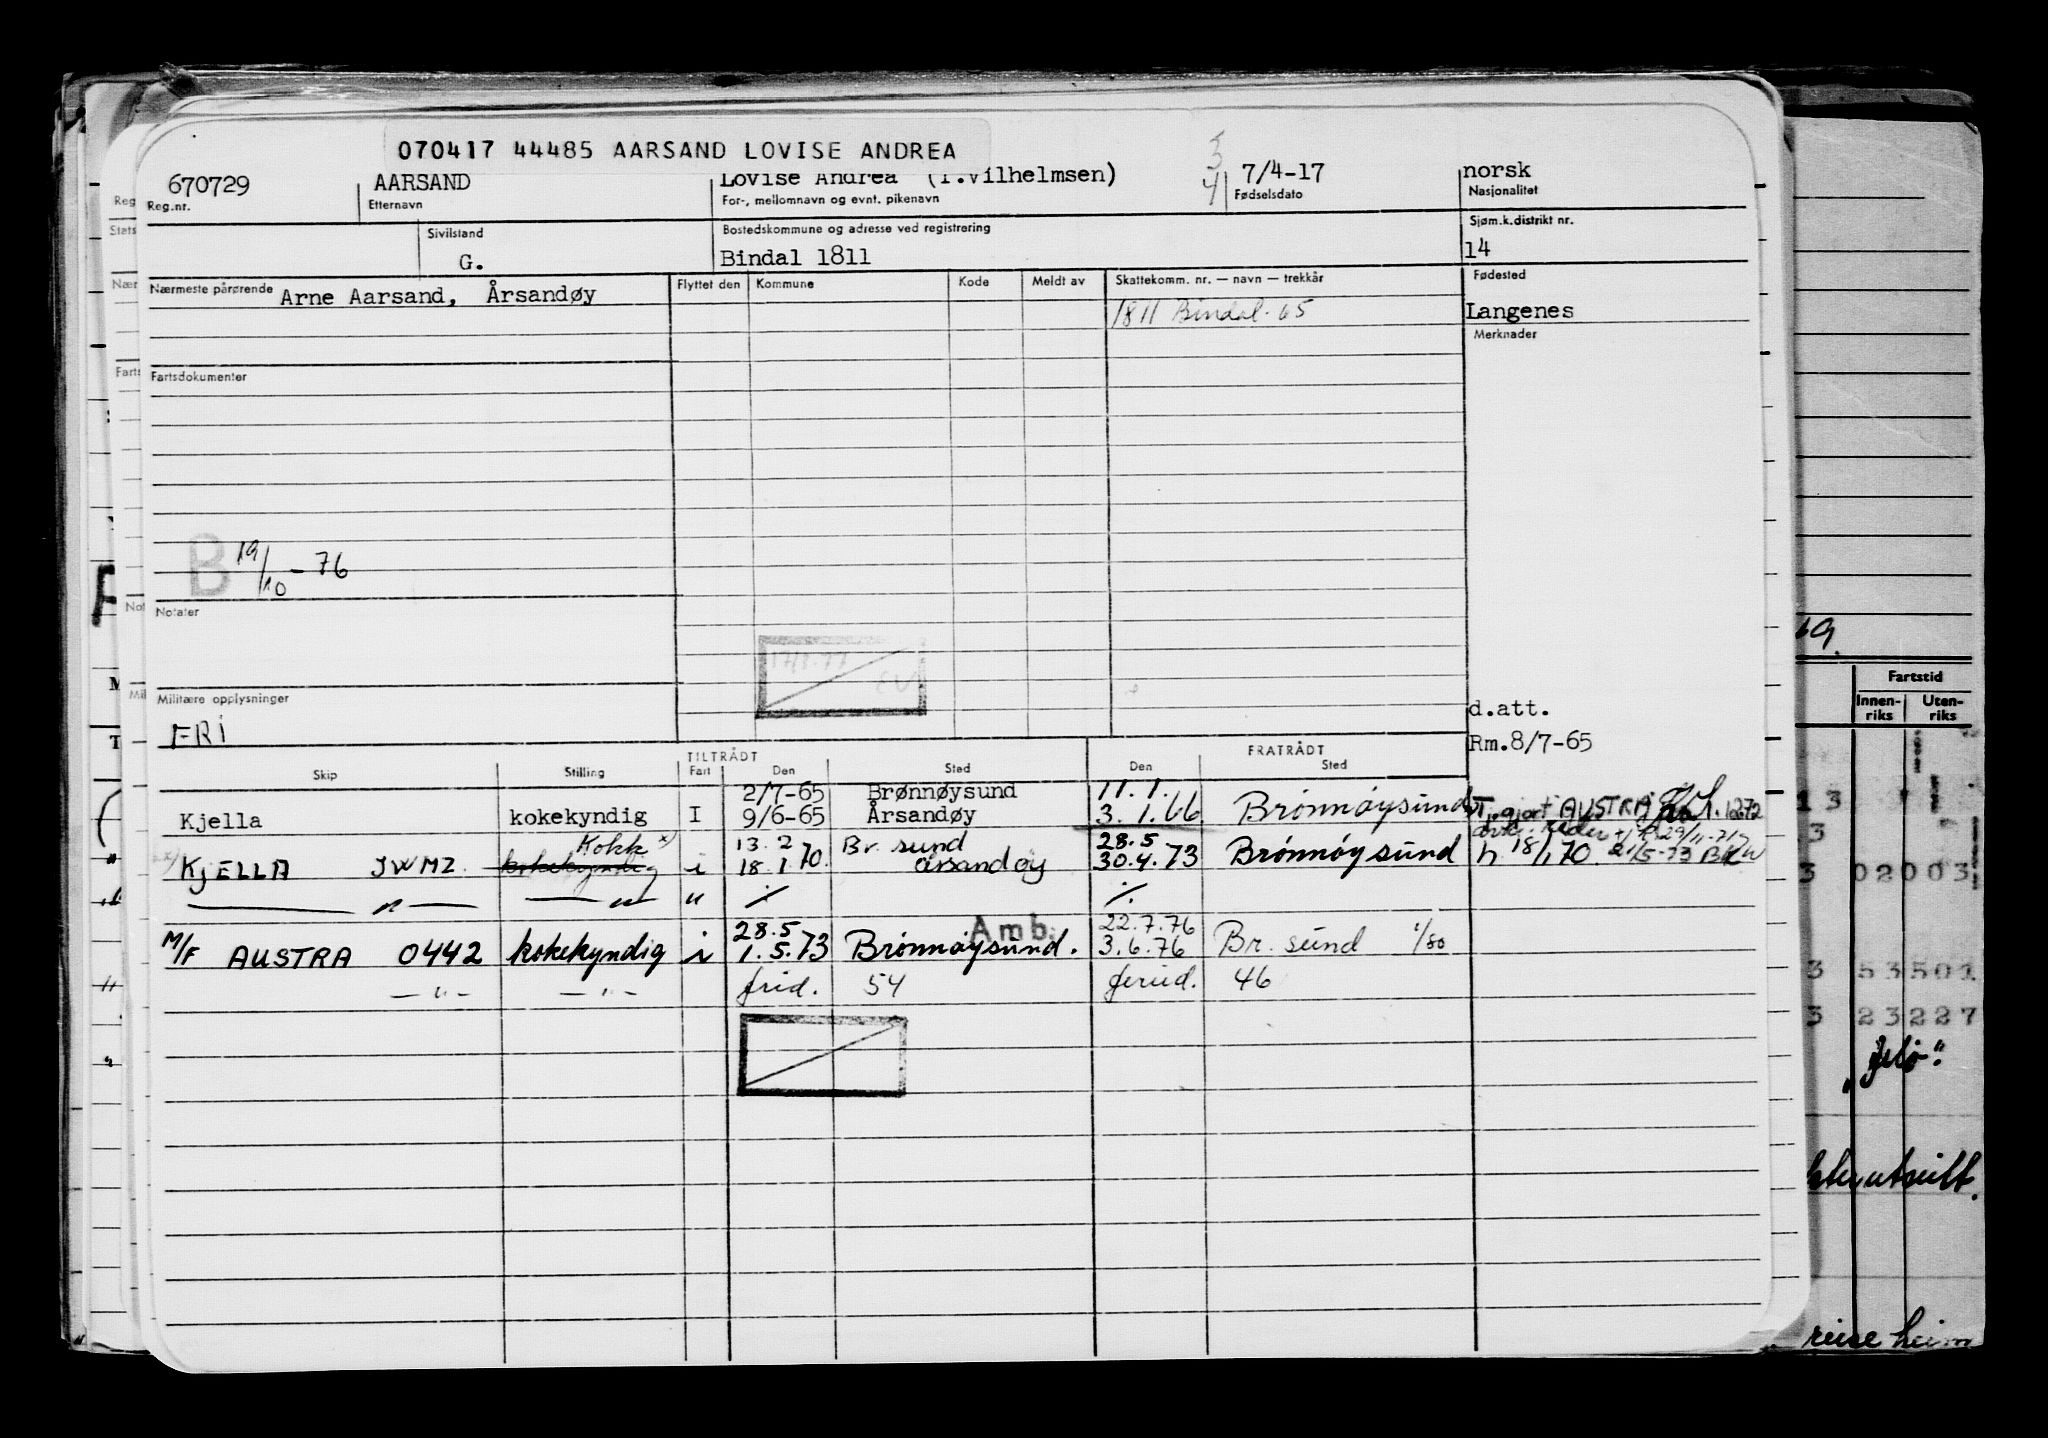 070417 44485 AARSAND LOVISE ANDREA
670729 AARSAND Lovise Andrea (f.Vilhelmsen) 5/4 7/4-17 norsk
Reg.nr. Etternavn For-, mellomnavn og evnt. pikenavn Fødselsdato Nasjonalitet
Sivilstand Bostedskommune og adresse ved registrering Sjøm.k.distrikt nr.
G. Bindal 1811 14
Nærmeste pårørende Arne Aarsand, Årsandøy Flyttet den Kommune Kode Meldt av Skattekomm. nr. — navn — trekkår Fødested
1811 Bindal-65 Langenes
Merknader
Fartsdokumenter
B 19/10-76
Notater
Militære opplysninger
FRI
d.att.
Rm.8/7-65
TILTRÅDT FRATRÅDT
Skip Stilling Fart Den Sted Den Sted
2/7-65 Brønnøysund 11.1.
Kjella kokekyndig I 9/6-65 Årsandøy 3.1.66 Brønnøysund
Kokk x) 13.2 Br. sund 28.5
KJELLA JWMZ kokekyndig i 18.1.70 Årsandøy 30.4.73 Brønnøysund h 18/1 70. 21/5-73
— " — — " — " ./. ./.
28.5 Amb. 22.7.76
M/F AUSTRA 0442 kokekyndig i 1.5.73 Brønnøysund. 3.6.76 Br. sund 1/80
— " — — " — frid. 54 feried. 46
69.
Fartstid
Innen-riks Uten-riks
13
3
3 02003
3 53501
3 23227
reise heim